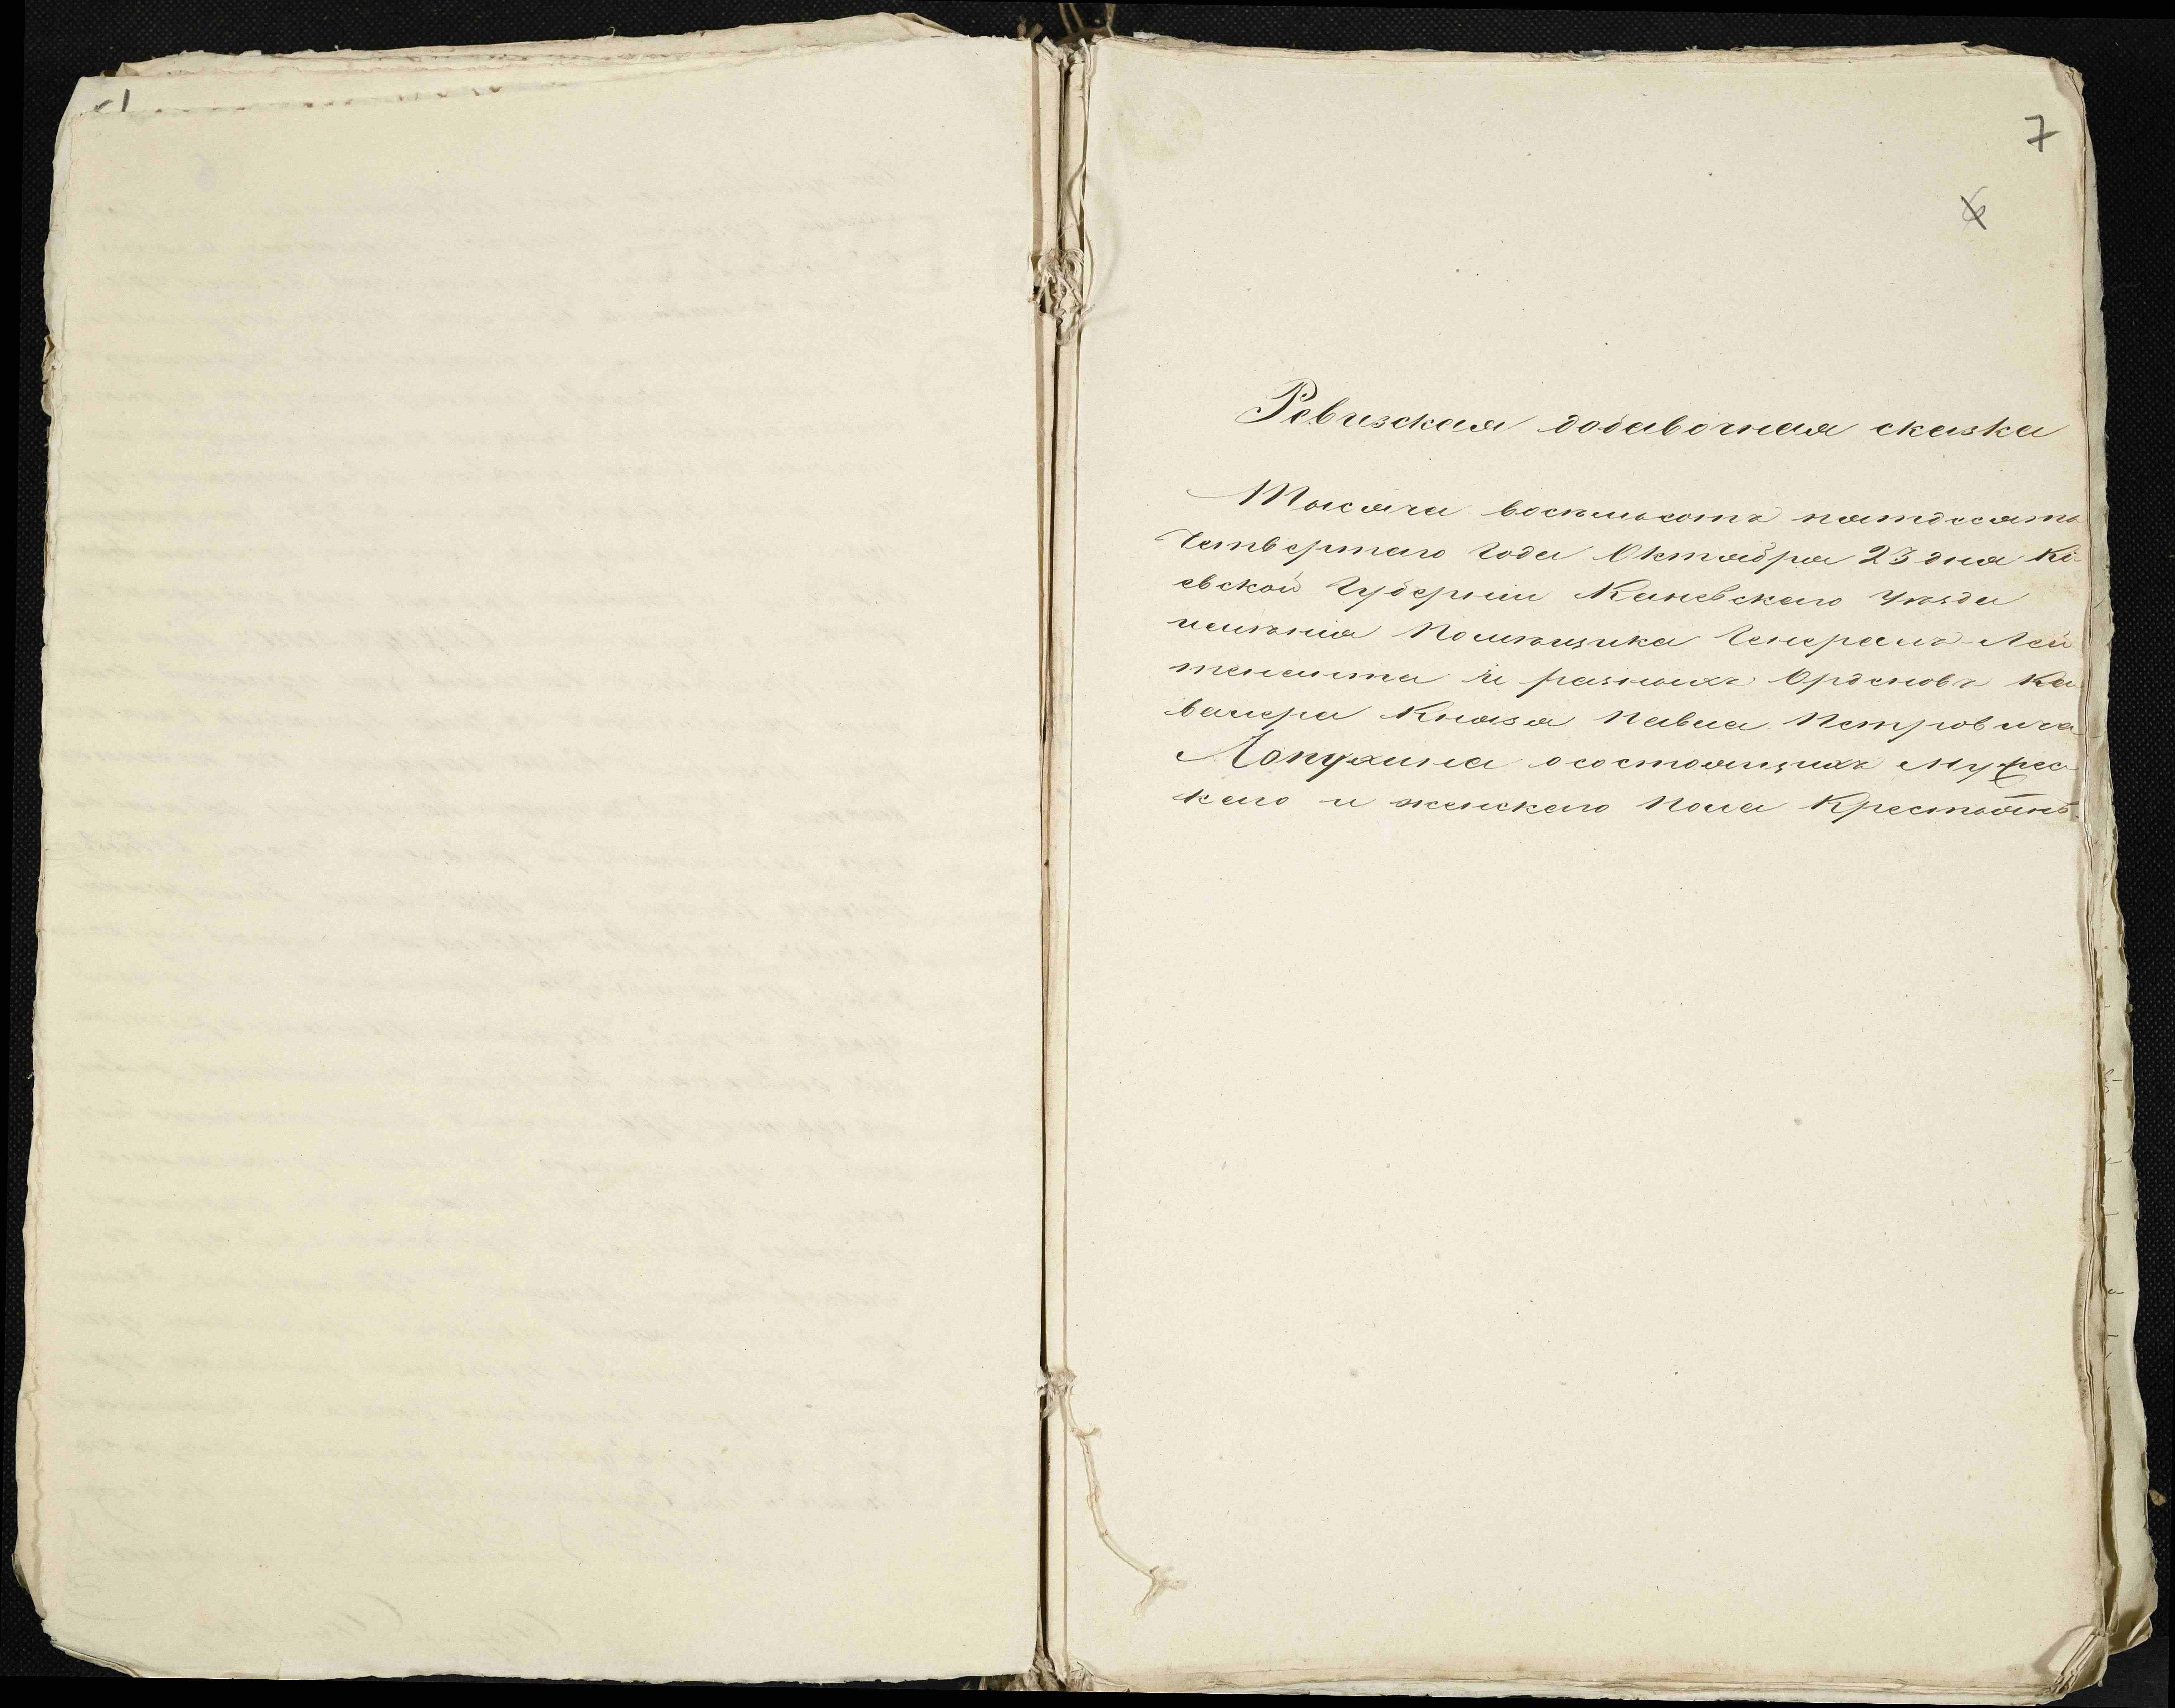 7
6
Ревизская добавочная сказка
Тысяча восемьсотъ пятдесятъ
Четвертаго Года Октября 23 дня Кі-
евской Губерніи Каневскаго Уѣзда
имѣнія Помѣщика Генералъ-Лей
тенанта и разныхъ Орденовъ Ка-
валера Князя Павла Петровича
Лопухина осостоящихъ Мужес-
каго и женскаго Пола Крестьянъ.